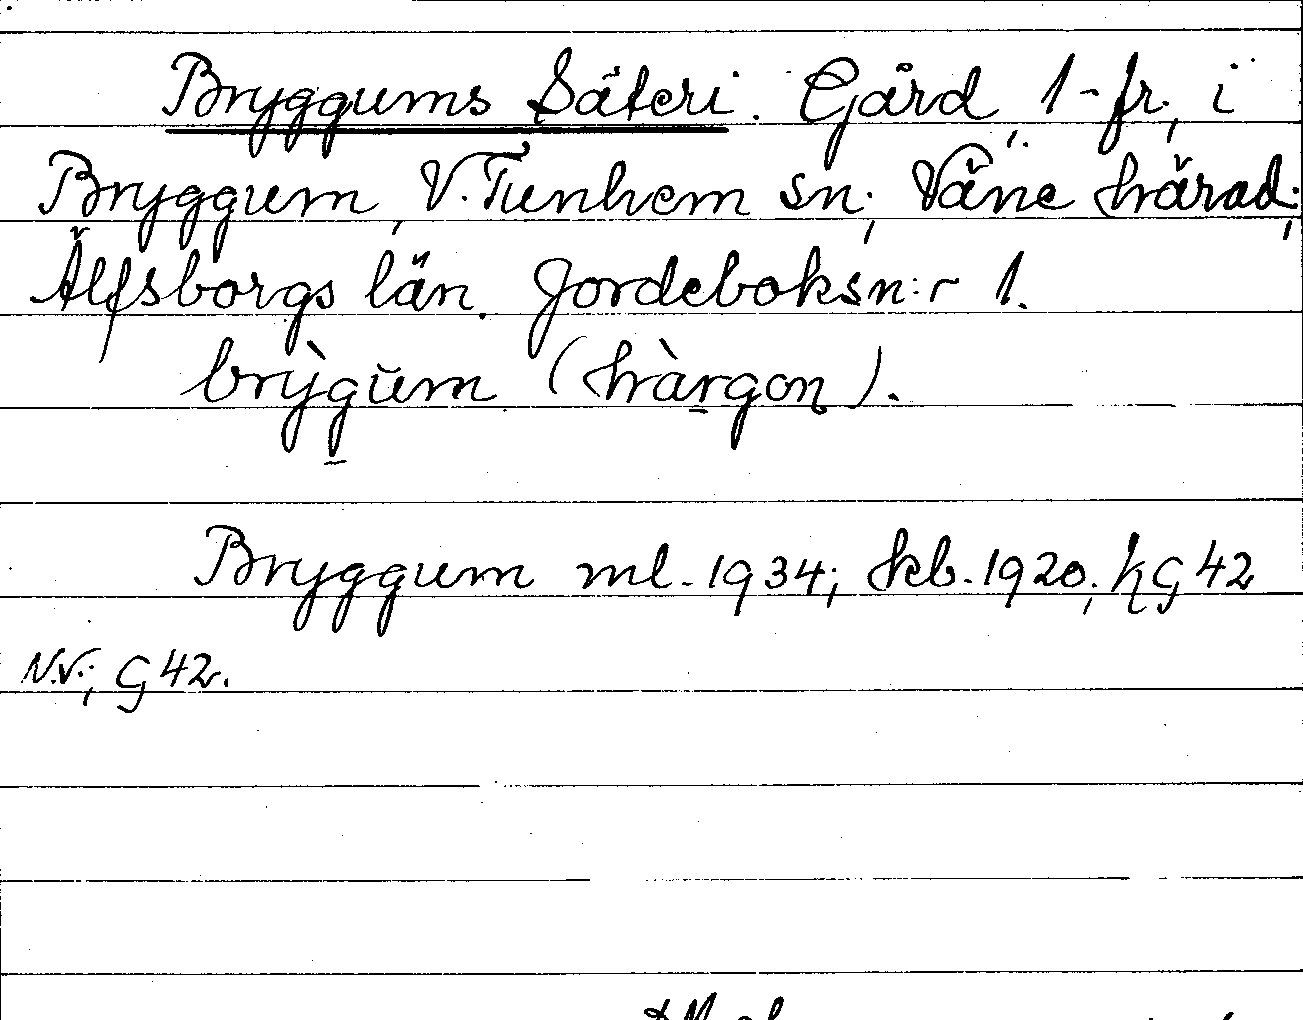 Bryggums Säteri. Gård, 1-fr., i
Bryggum, V. Tunhem sn; Väne härad;
Älfsborgs län. Jordeboksn:r 1.
brỳgŭm (hàrgon).
Bryggum ml. 1934; skb. 1920; hG42
N.V.; G42.